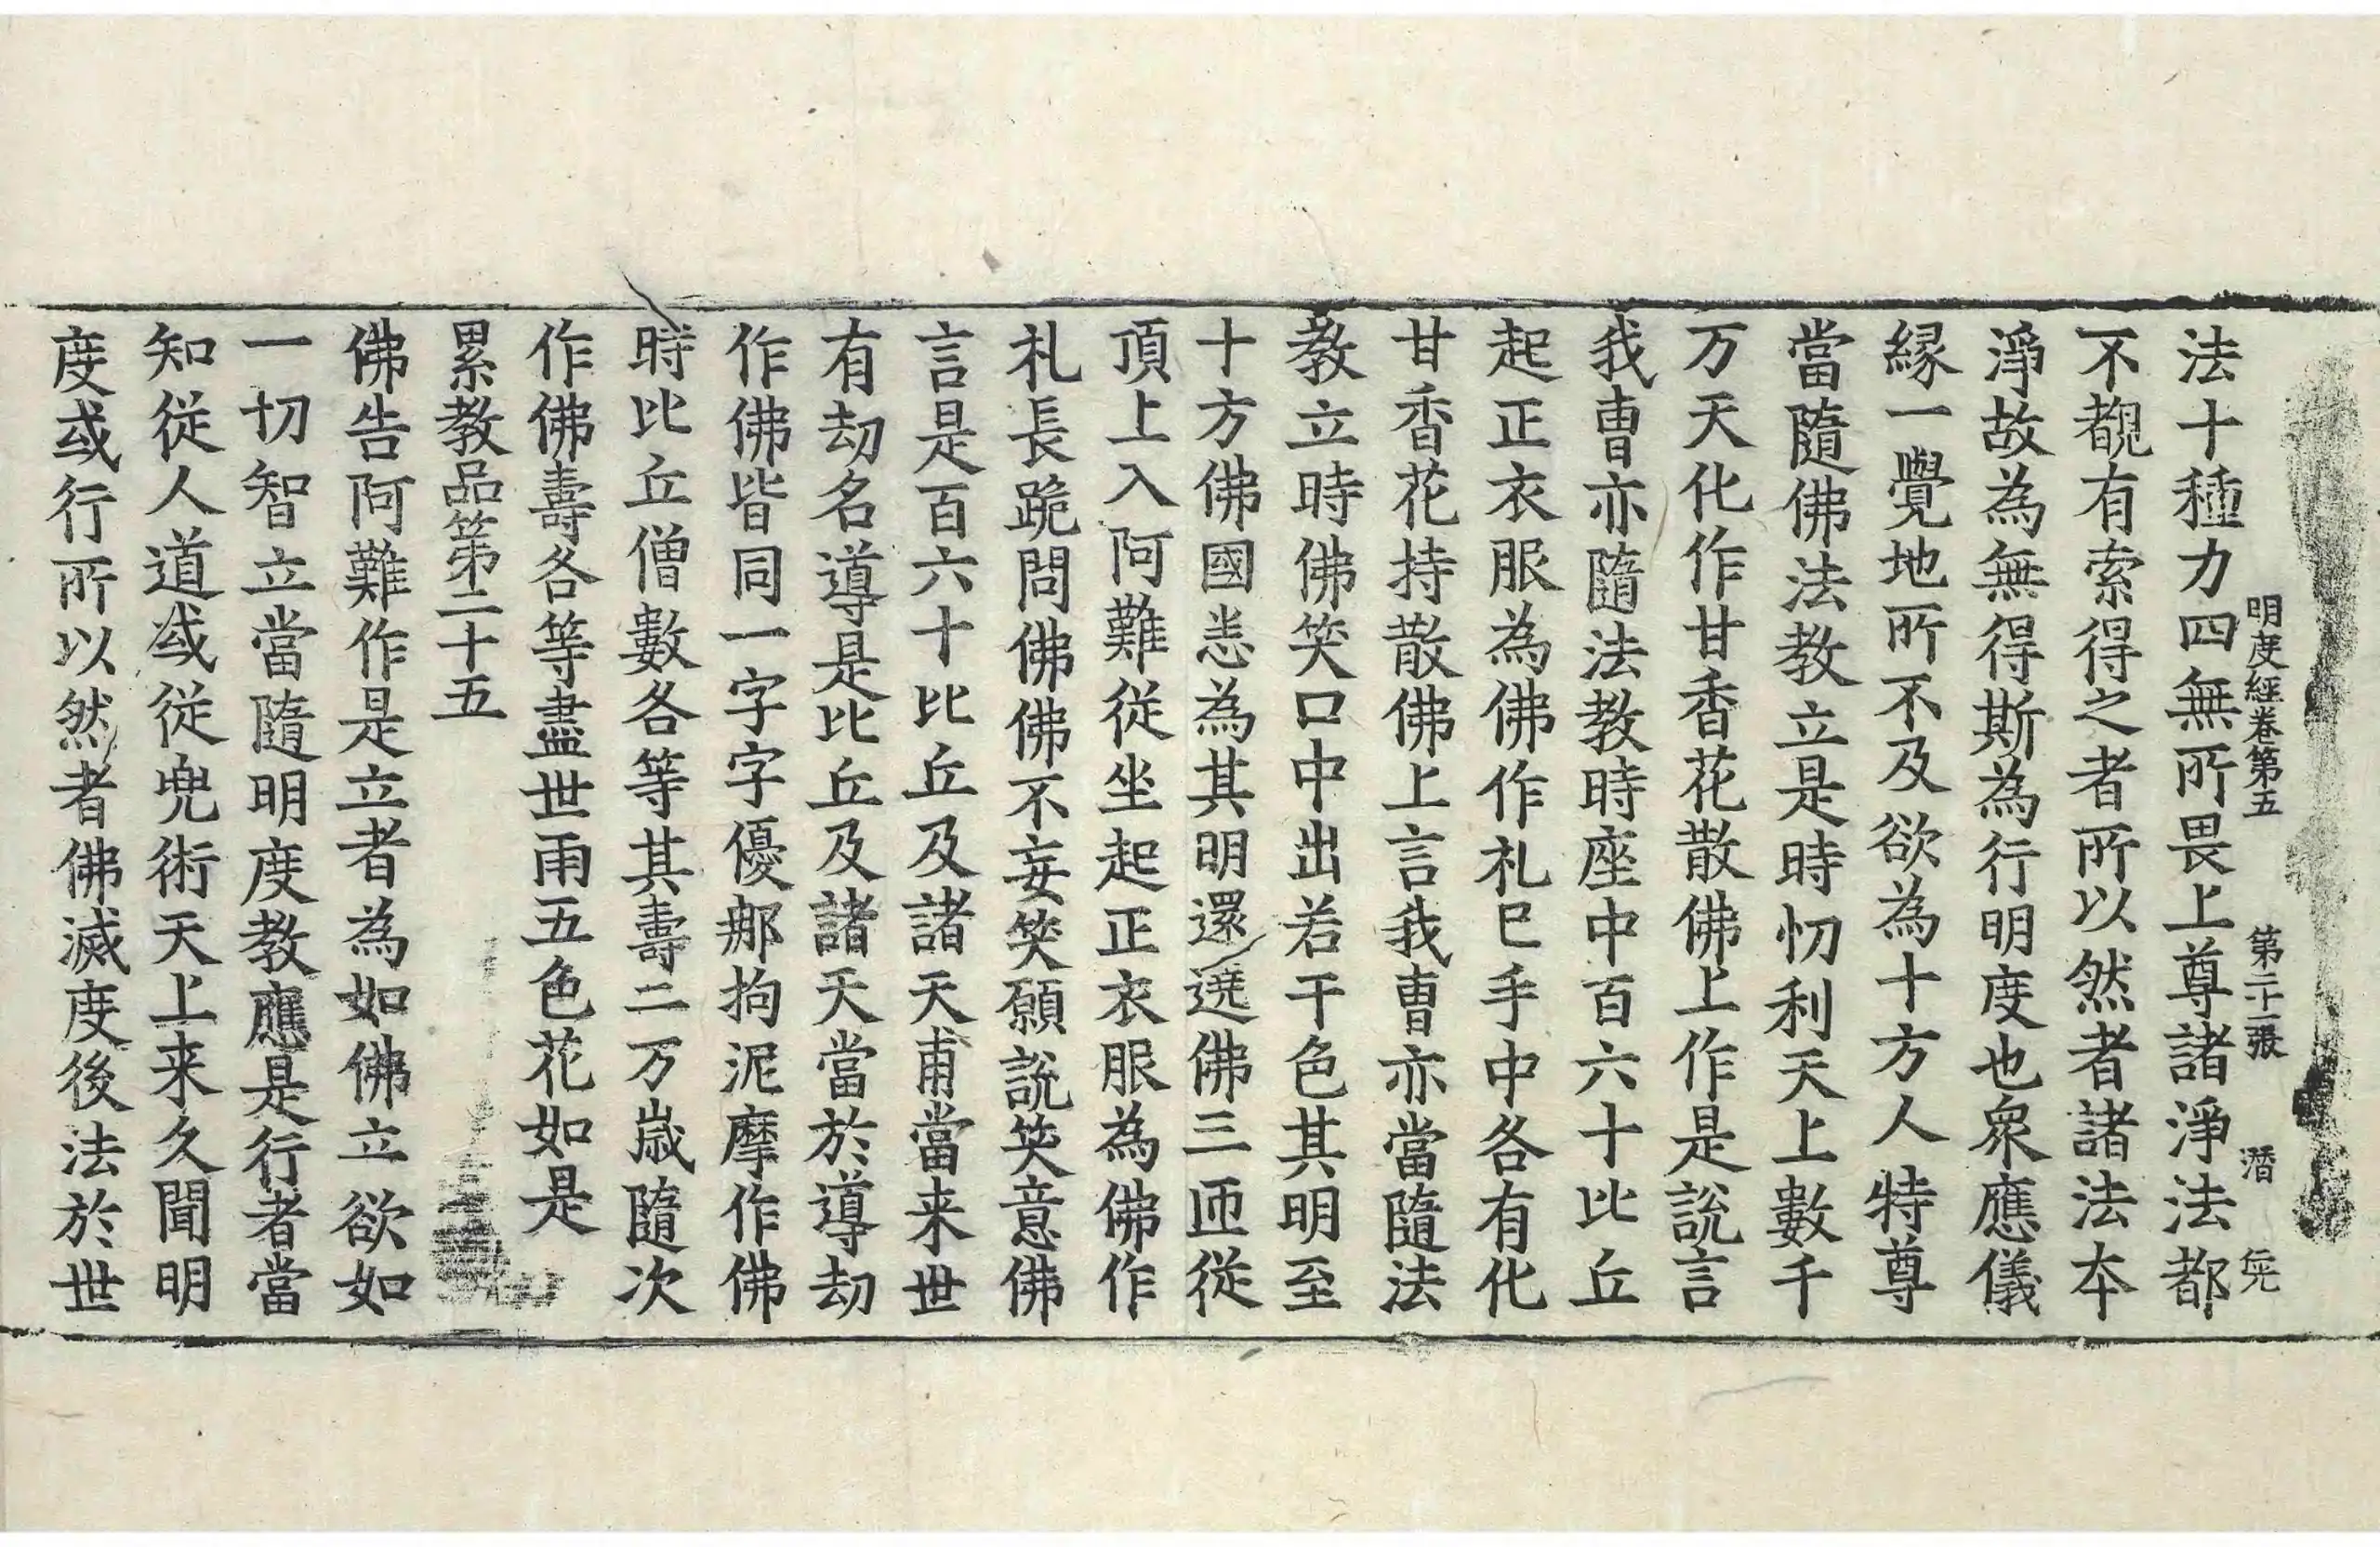 明度經卷第五　第二十一張　潛　伝
法十種力四無所畏上尊諸淨法都
不覩有索得之者所以然者諸法本
淨故為無得斯為行明度也衆應儀
緣一覺地所不及欲為十方人特尊
當隨佛法教立是時忉利天上數千
万天化作甘香花散佛上作是說言
我曹亦隨法教時座中百六十比丘
起正衣服為佛作礼已手中各有化
甘香花持散佛上言我曹亦當隨法
教立時佛笑口中出若干色其明至
十方佛國恙為其明還遶佛三匝從
頂上入阿難從坐起正衣服為佛作
札長跪問佛佛不妄笑願說笑意佛
言是百六十比丘及諸天甫當来世
有劫名導是比丘及諸天當於導劫
作佛皆同一字字優那拘泥摩作佛
時比丘僧數各等其壽二万歲隨次
作佛壽各等盡世雨五色花如是
累教品第二十五
佛告阿難作是立者為如佛立欲如
一切智立當隨明度教應是行者當
知從人道或從兜術天上来久聞明
度或行所以然者佛滅度後法於世